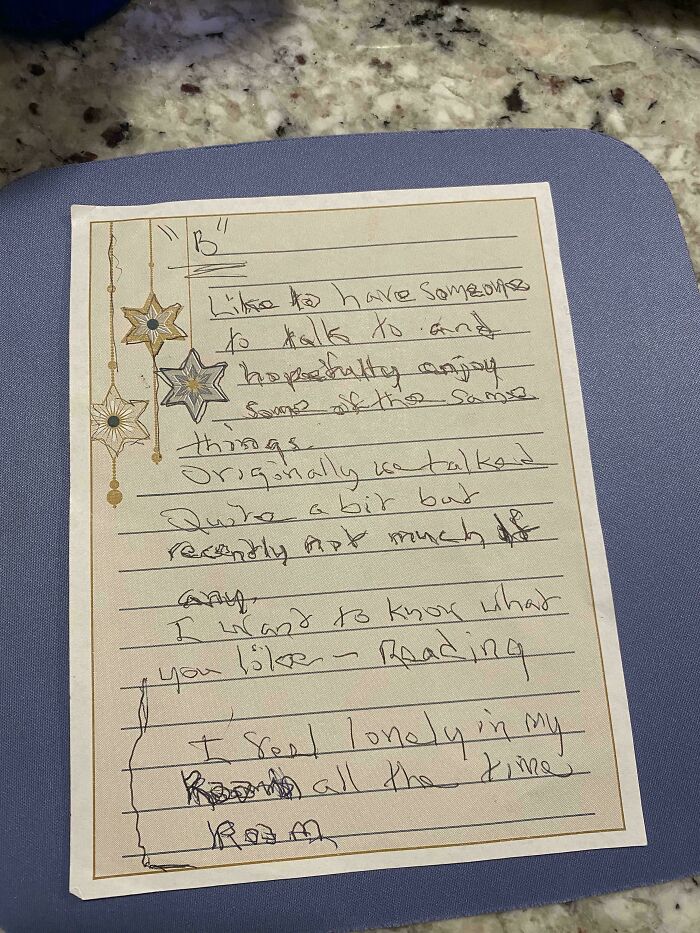 "B"
Like to have someone
to talk to and
hopefully enjoy
some of the same
things.
Originally we talked
Quite a bit but
recently not much if
any.
I want to know what
you like - Reading
I feel lonely in my
Room all the time
Room